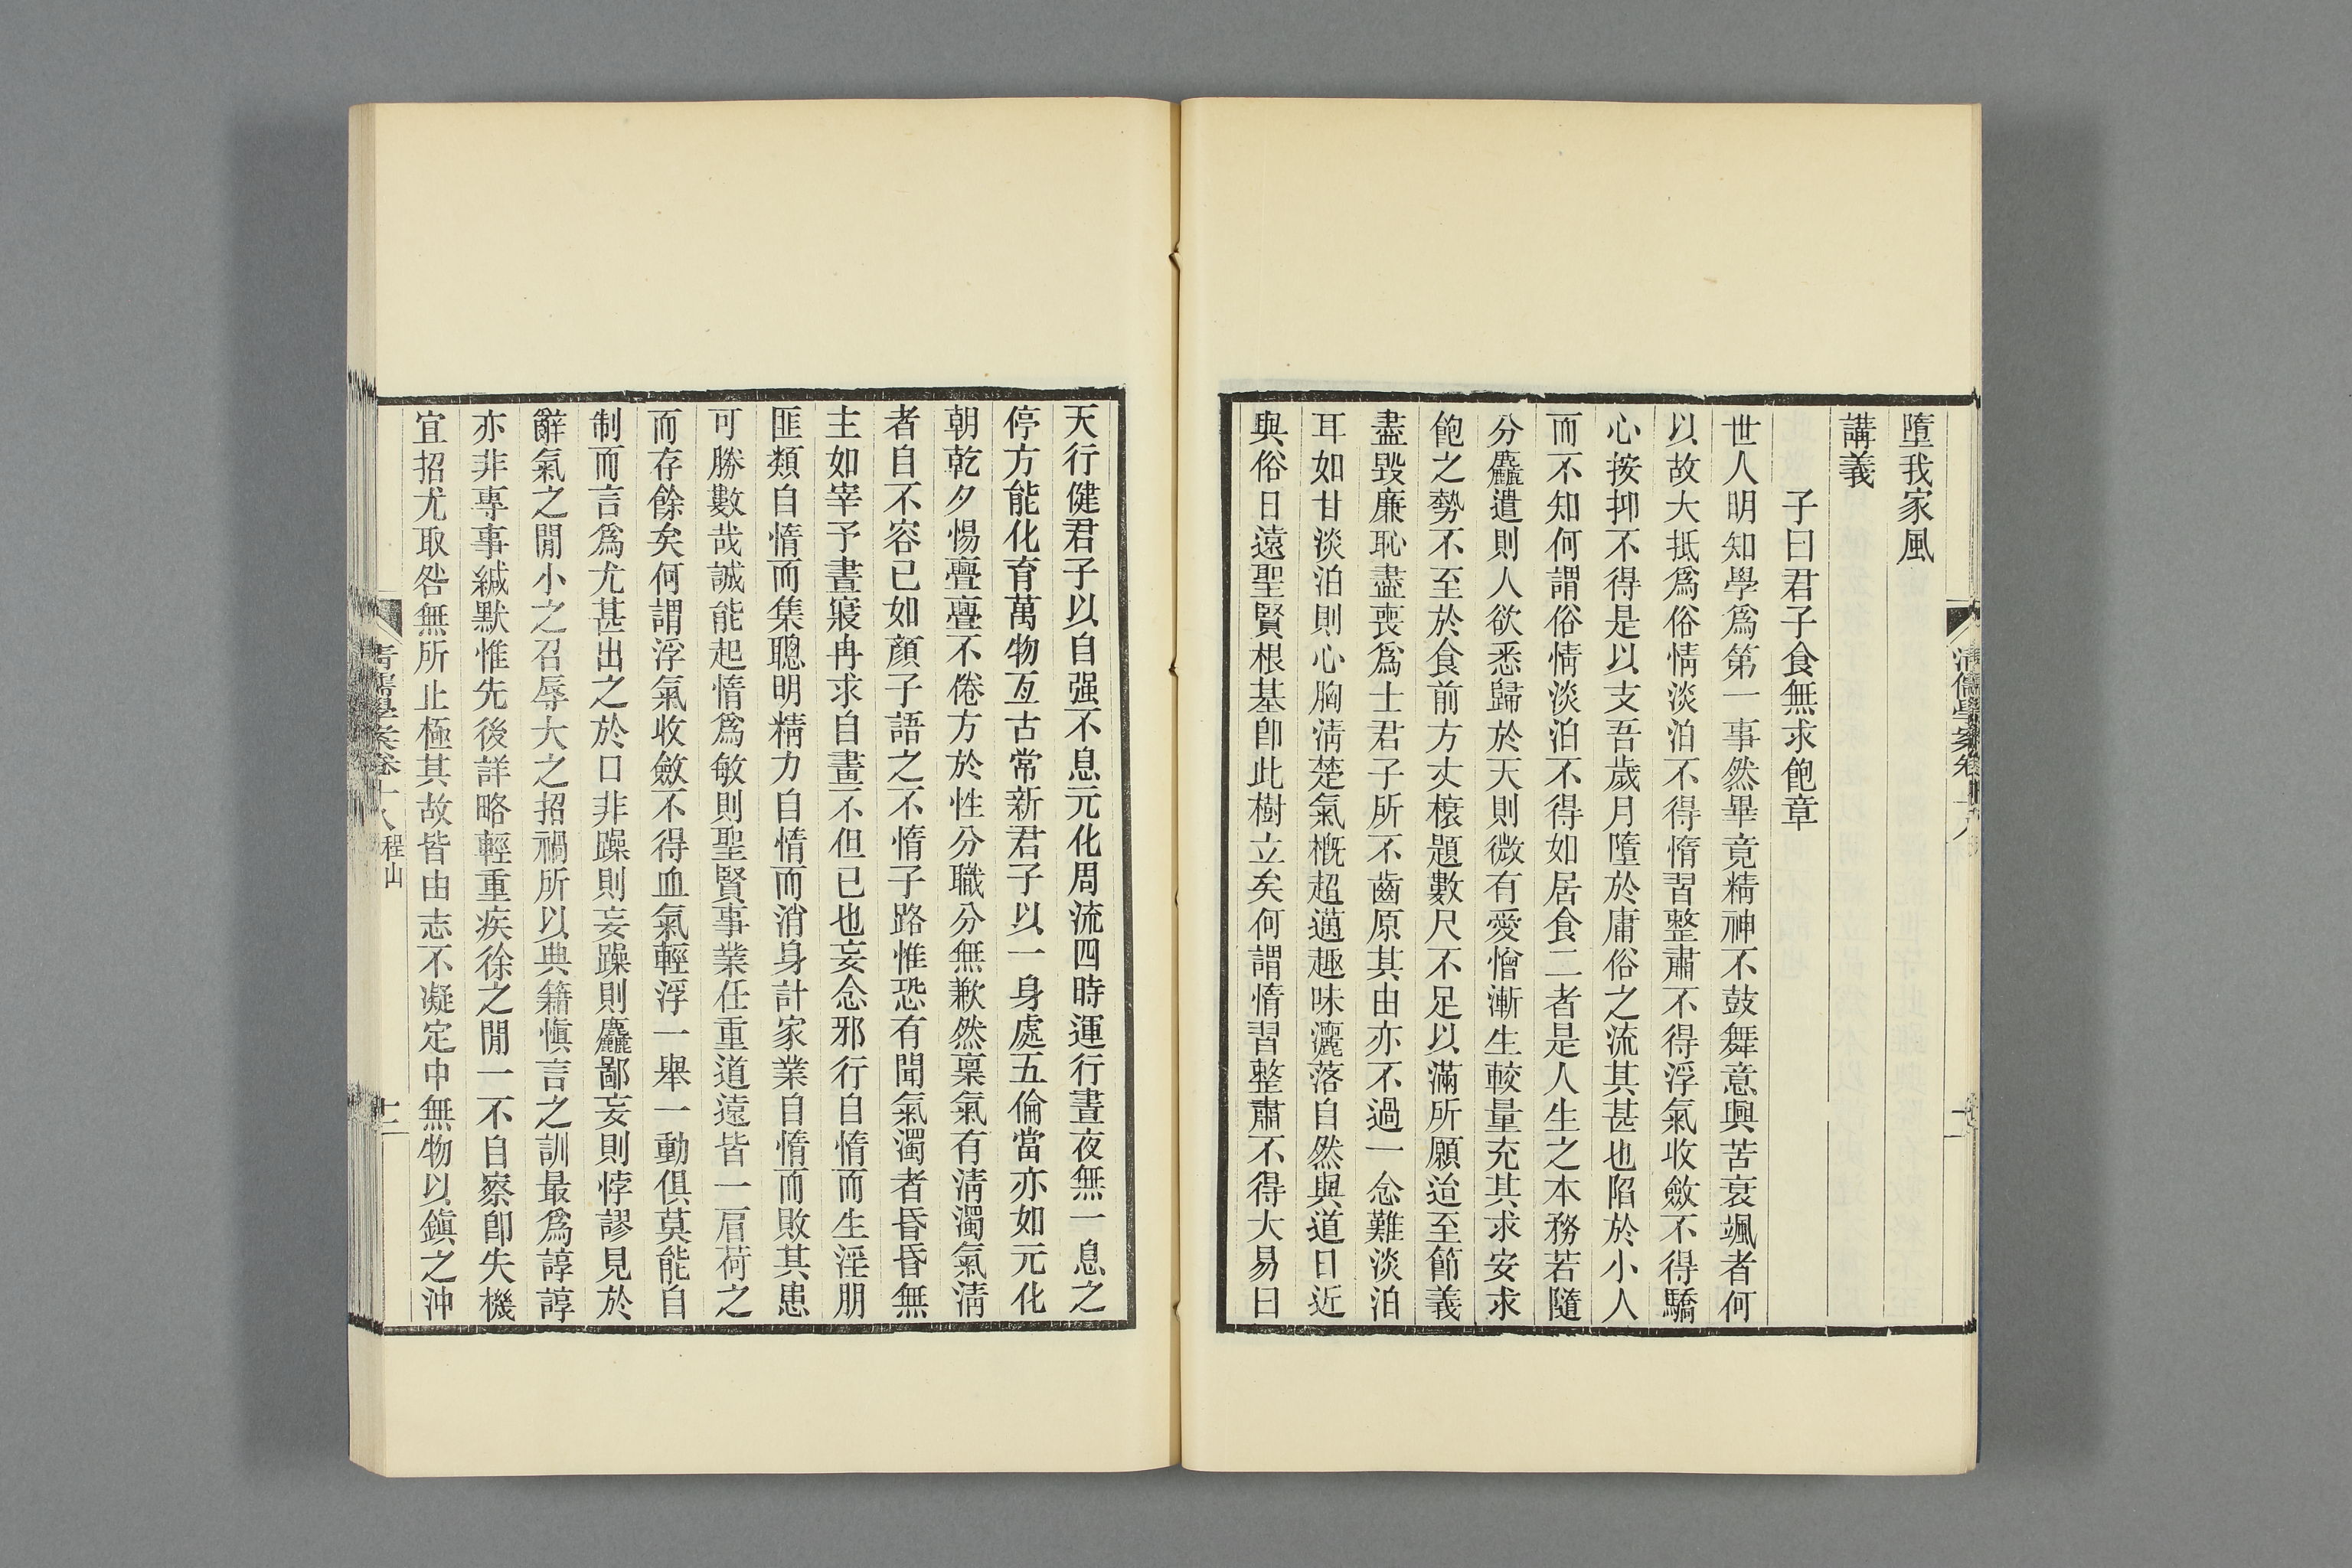 墮我家風
講義
子曰君子食無求飽章
世人明知學爲第一事然畢竟精神不鼓舞意興苦衰颯者何
以故大抵爲俗情淡泊不得惰習整肅不得浮氣收斂不得驕
心按抑不得是以支吾歲月墮於庸俗之流其甚也陷於小人
而不知何謂俗情淡泊不得如居食二者是人生之本務若隨
分麤遣則人欲悉歸於天則微有愛憎漸生較量充其求安求
飽之勢不至於食前方丈榱題數尺不足以滿所願迨至節義
盡毀廉恥盡喪爲士君子所不齒原其由亦不過一念難淡泊
耳如甘淡泊則心胸淸楚氣槪超邁趣味灑落自然與道日近
與俗日遠聖賢根基卽此樹立矣何謂惰習整肅不得大易曰
天行健君子以自强不息元化周流四時運行晝夜無一息之
停方能化育萬物亙古常新君子以一身處五倫當亦如元化
朝乾夕惕亹亹不倦方於性分職分無歉然稟氣有淸濁氣淸
者自不容已如顏子語之不惰子路惟恐有聞氣濁者昏昏無
主如宰予晝寢冉求自畫不但已也妄念邪行自惰而生淫朋
匪類自惰而集聰明精力自惰而消身計家業自惰而敗其患
可勝數哉誠能起惰爲敏則聖賢事業任重道遠皆一肩荷之
而存餘矣何謂浮氣收斂不得血氣輕浮一舉一動俱莫能自
制而言爲尤甚出之於口非躁則妄躁則麤鄙妄則悖謬見於
辭氣之閒小之召辱大之招禍所以典籍愼言之訓最爲諄諄
亦非專事緘默惟先後詳略輕重疾徐之閒一不自察卽失機
宜招尤取咎無所止極其故皆由志不凝定中無物以鎭之沖
淸儒學案卷十八 程山